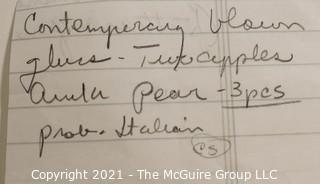 Contemporary blown
glass - Two apples
and a Pear - 3pcs
prob. Italian
CS
Copyright 2021 - The McGuire Group LLC